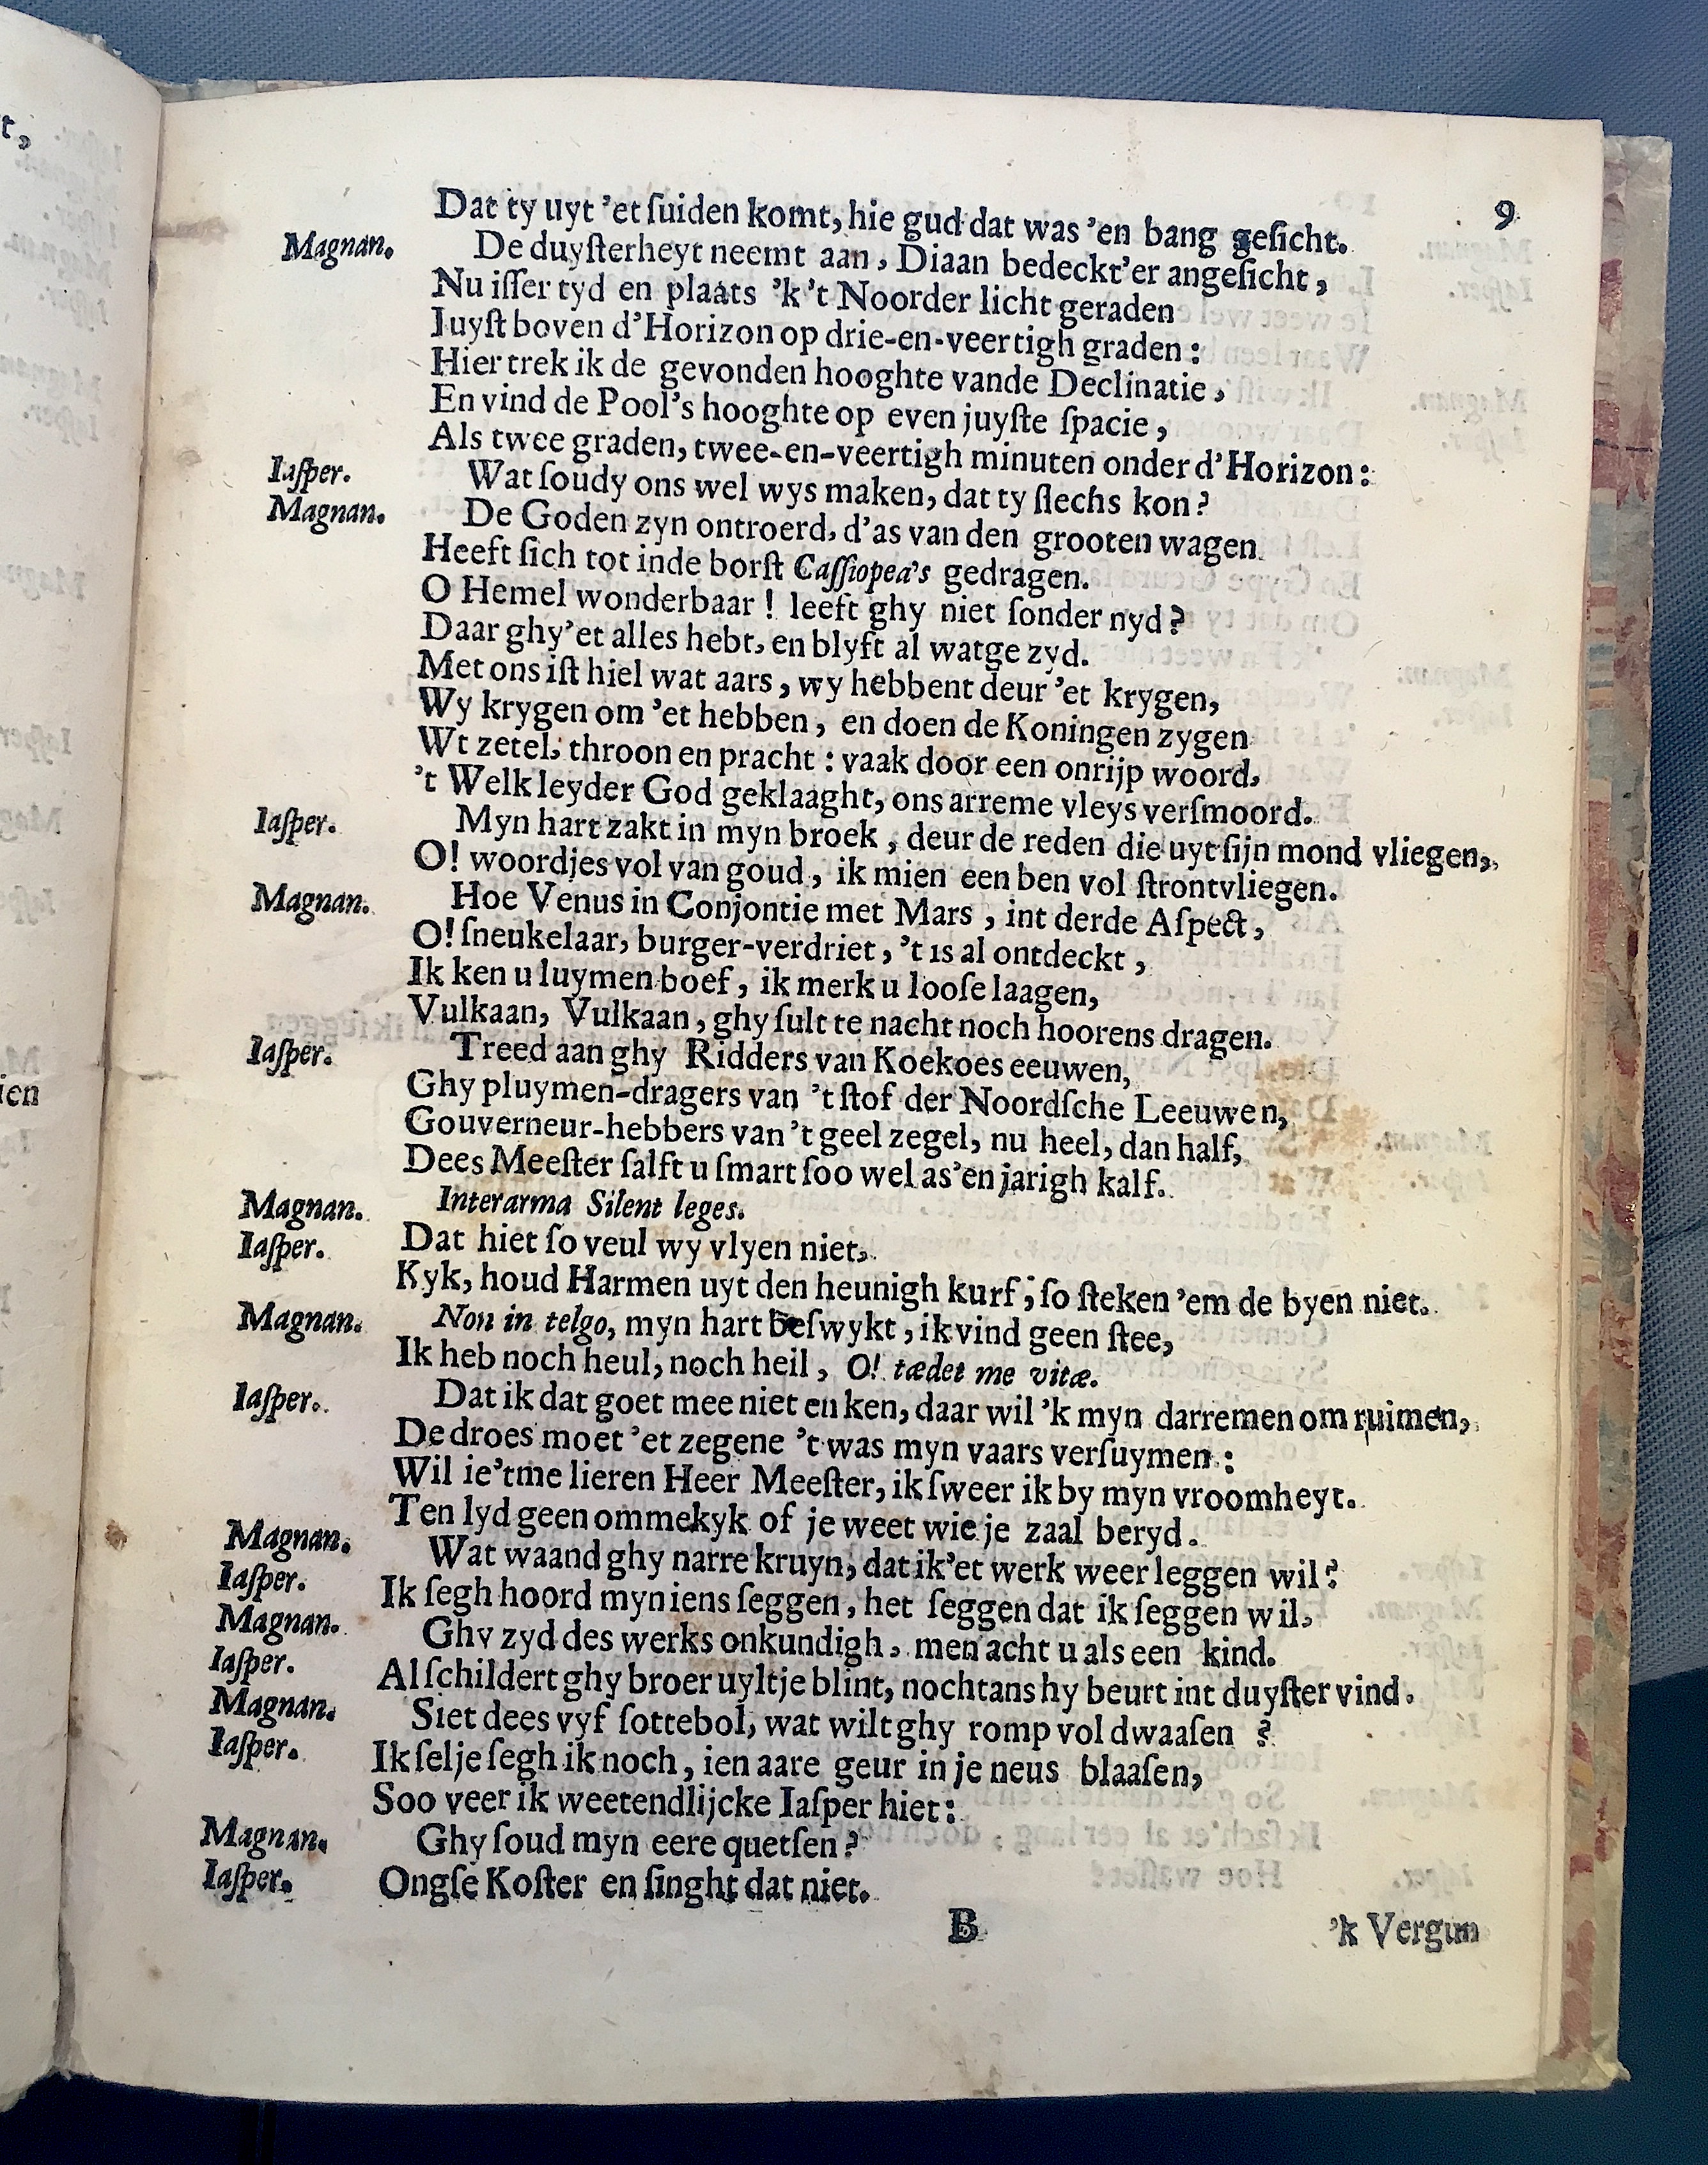 t,
ien
9
Dat ty uyt 'et ſuiden komt, hie gud dat was 'en bang geſicht.
Magnan. De duyſterheyt neemt aan, Diaan bedeckt'er angeſicht,
Nu iſſer tyd en plaats 'k 't Noorder licht geraden
Juyſt boven d'Horizon op drie-en-veertigh graden:
Hier trek ik de gevonden hooghte vande Declinatie,
En vind de Pool's hooghte op even juyſte ſpacie,
Als twee graden, twee-en-veertigh minuten onder d'Horizon:
Iaſper. Wat ſoudy ons wel wys maken, dat ty ſlechs kon?
Magnan. De Goden zyn ontroerd, d'as van den grooten wagen
Heeft ſich tot inde borſt Caſſiopea's gedragen.
O Hemel wonderbaar! leeft ghy niet ſonder nyd?
Daar ghy'et alles hebt, en blyft al watge zyd.
Met ons iſt hiel wat aars, wy hebbent deur 'et krygen,
Wy krygen om 'et hebben, en doen de Koningen zygen
Wt zetel, throon en pracht: vaak door een onrijp woord,
't Welk leyder God geklaaght, ons arreme vleys verſmoord.
Iaſper. Myn hart zakt in myn broek, deur de reden die uyt ſijn mond vliegen,
O! woordjes vol van goud, ik mien een ben vol ſtrontvliegen.
Magnan. Hoe Venus in Conjontie met Mars, int derde Aſpect,
O! ſneukelaar, burger-verdriet, 't is al ontdeckt,
Ik ken u luymen boef, ik merk u looſe laagen,
Vulkaan, Vulkaan, ghy ſult te nacht noch hoorens dragen.
Iaſper. Treed aan ghy Ridders van Koekoes eeuwen,
Ghy pluymen-dragers van 't ſtof der Noordſche Leeuwen,
Gouverneur-hebbers van 't geel zegel, nu heel, dan half,
Dees Meeſter ſalft u ſmart ſoo wel as'en jarigh kalf.
Magnan. Interarma Silent leges.
Iaſper. Dat hiet ſo veul wy vlyen niet,
Kyk, houd Harmen uyt den heunigh kurf; ſo ſteken 'em de byen niet.
Magnan. Non in telgo, myn hart beſwykt, ik vind geen ſtee,
Ik heb noch heul, noch heil, O! tædet me vitæ.
Iaſper. Dat ik dat goet mee niet en ken, daar wil 'k myn darremen om ruimen,
De droes moet 'et zegene 't was myn vaars verſuymen:
Wil ie'tme lieren Heer Meeſter, ik ſweer ik by myn vroomheyt.
Ten lyd geen ommekyk of je weet wie je zaal beryd.
Magnan. Wat waand ghy narre kruyn, dat ik'et werk weer leggen wil?
Iaſper. Ik ſegh hoord myn iens ſeggen, het ſeggen dat ik ſeggen wil,
Magnan. Ghy zyd des werks onkundigh, men acht u als een kind.
Iaſper. Al ſchildert ghy broer uyltje blint, nochtans hy beurt int duyſter vind.
Magnan. Siet dees vyf ſottebol, wat wilt ghy romp vol dwaaſen?
Iaſper. Ik ſelje ſegh ik noch, ien aare geur in je neus blaaſen,
Soo veer ik weetendlijcke Iaſper hiet:
Magnan. Ghy ſoud myn eere quetſen?
Iaſper. Ongſe Koſter en ſinght dat niet.
B 'k Vergun